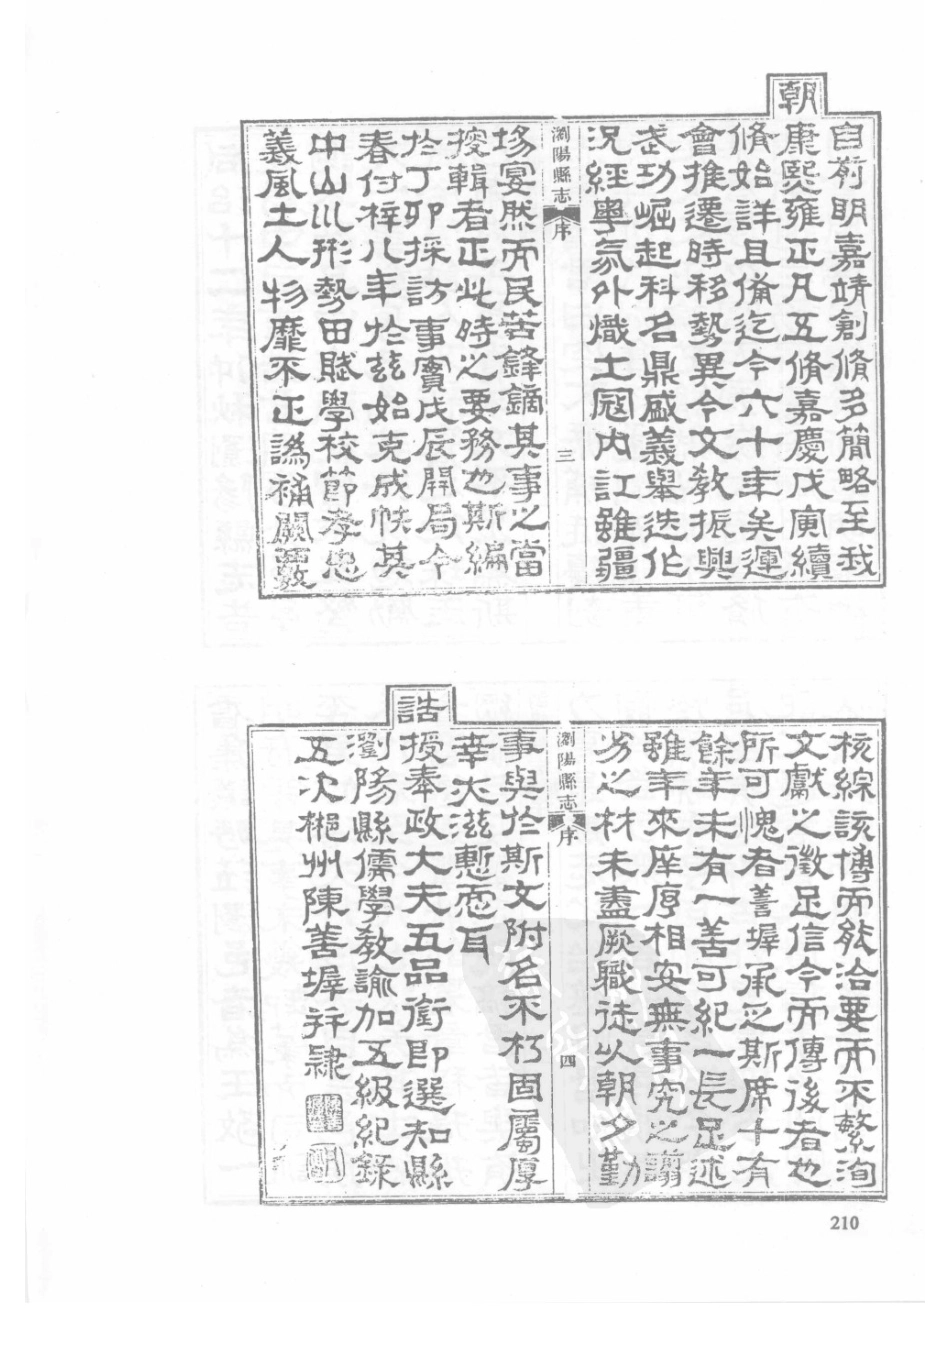 自前明嘉靖創脩多簡略至我
朝
康熙雍正凡五脩嘉慶戊寅續
脩始詳且備迄今六十年矣運
會推遷時移勢異今文教振興
武功崛起科名鼎盛義舉迭作
況經粵氛外熾土冦內訌雖疆
瀏陽縣志 序 三
埸宴然而民苦鋒鏑其事之當
搜輯者正此時之要務也斯編
於丁卯採訪事實戊辰開局今
春付梓八年於茲始克成帙其
中山川形勢田賦學校節孝忠
義風土人物靡不正譌補闕覈
核綜該博而能洽要而不繁洵
文獻之徵足信今而傳後者也
所可愧者善墀承乏斯席十有
餘年未有一善可紀一長足述
雖年來庠序相安無事究之譾
劣之材未盡厥職徒以朝夕勤
瀏陽縣志 序 四
事與於斯文附名不朽固屬厚
幸亦滋慙恧耳
誥
授奉政大夫五品銜即選知縣
瀏陽縣儒學教諭加五級紀錄
五次郴州陳善墀并隸
210